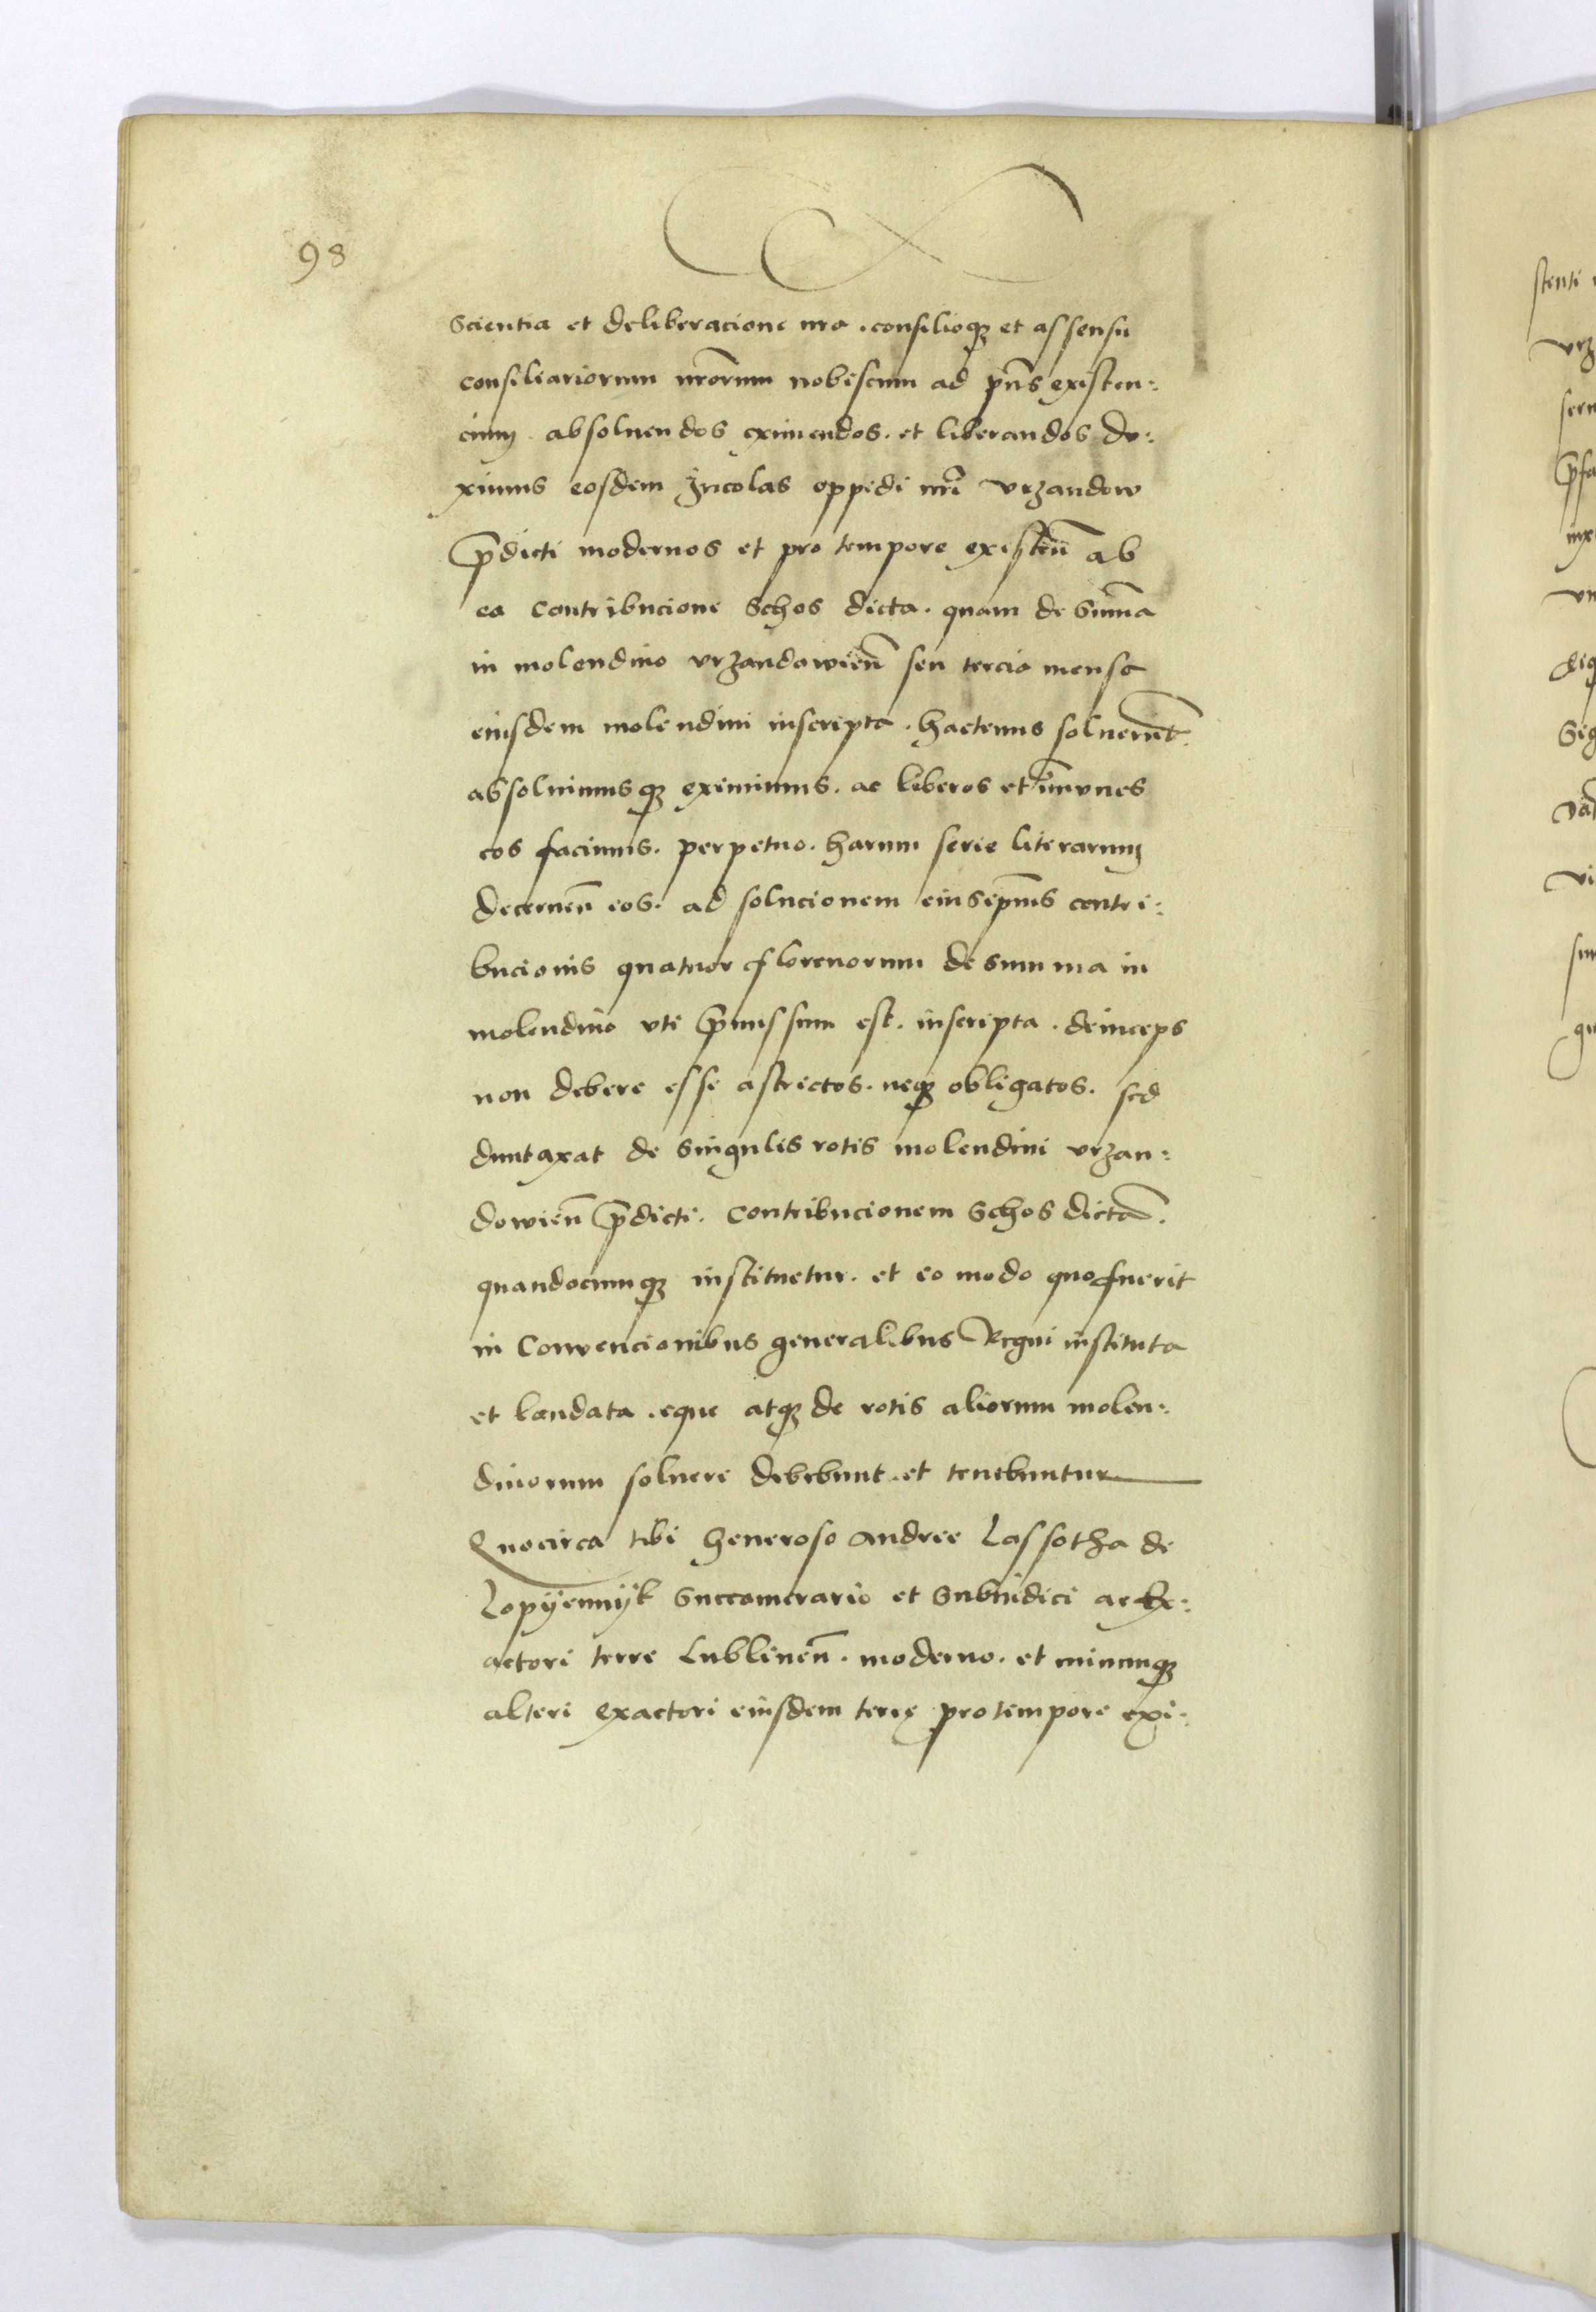 98
Scientia et deliberacione nra . consilioqʒ et assensu
consiliariorum nrōrum nobiscum ad pn̄s existen:
cium absoluendos eximendos . et liberandos du:
ximus eosdem Incolas oppidi nrī vrzandow
p̄dicti modernos et pro tempore existen̄ ab
ea contribucione Schos dicta . quam de Sum̄a
in molendino vrzandowien̄ seu tercia mensa
eiusdem molendini inscripta . hactenus soluerūnt .
absoluimusqʒ eximimus . ac liberos et im̄vnes
eos facimus . perpetuo . harum serie literarum
decernen̄ eos . ad solucionem eius contri:
bucionis quatuor florenorum de summa in
molendino vti p̄missum est . inscripta . deinceps
non debere esse astrictos . neqʒ obligatos . sed
duntaxat de singulis rotis molendini vrzan:
dowien̄ p̄dicti . contribucionem Schos dictā .
quandocumqʒ instituetur . et eo modo quo fuerit
in Conuencionibus generalibus Regni instituta
et laudata . eque atqʒ de rotis aliorum molen:
dinorum soluere debebunt . et tenebuntur
Quocirca tibi Generoso Andree Lassotha de
Lopyennyk Succamerario et Subiudici ac Ex:
actori terre Lublinen̄ . moderno . et
alteri exactori eiusdem terrę pro tempore exi:
stenti
vrz